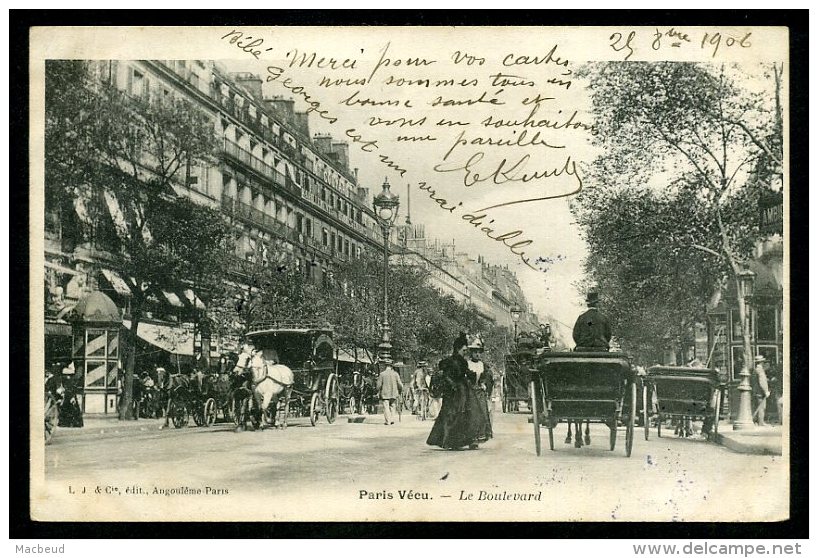 25 8bre 1906
Merci pour vos cartes
nous sommes tous en
bonne santé et
vous en souhaitons
une pareille
Bébé Georges est un vrai diable
L. J. & Cie, édit., Angoulême-Paris
Paris Vécu. — Le Boulevard
Macbeud
www.delcampe.net